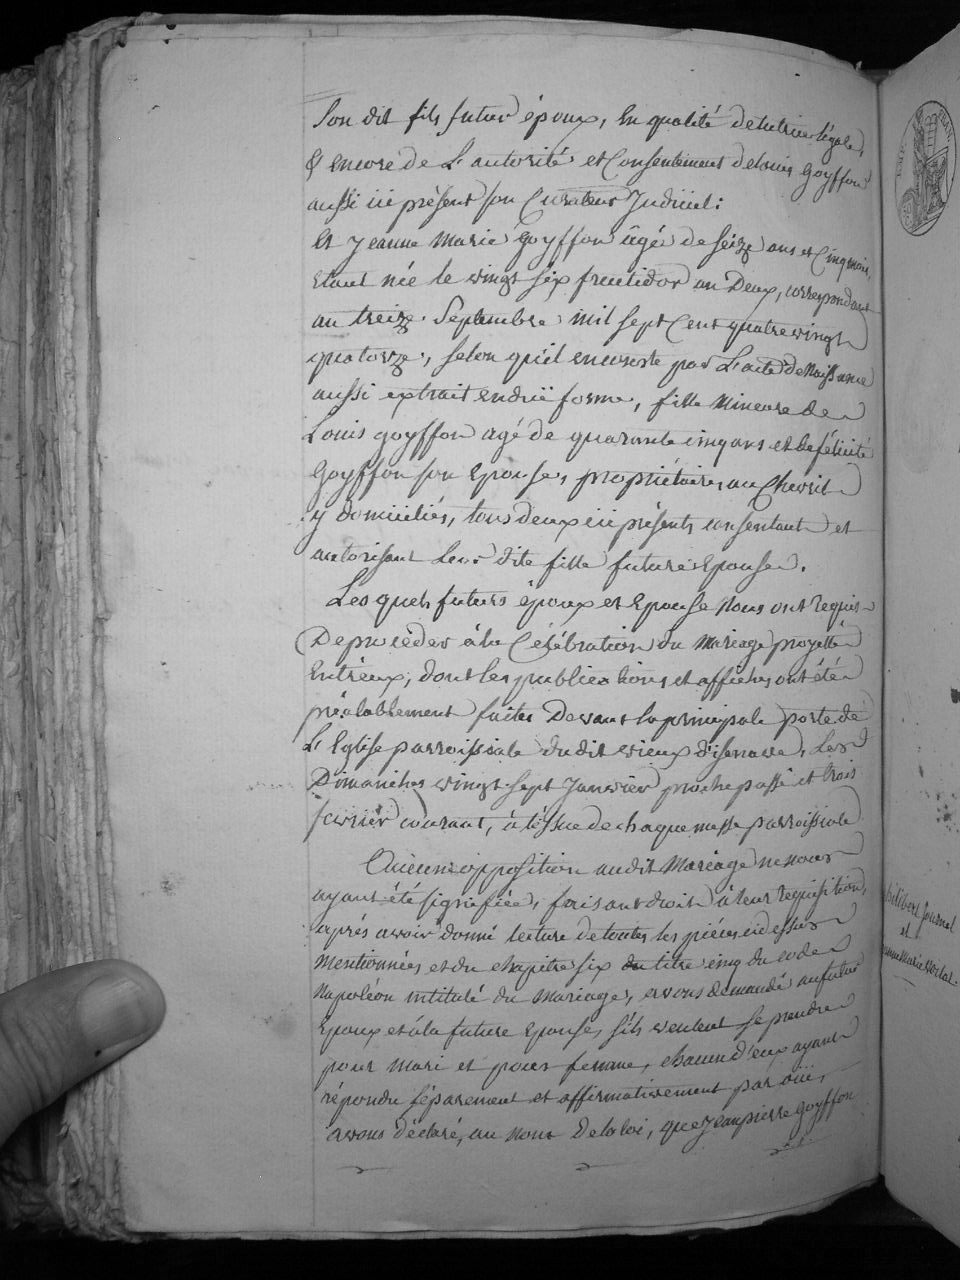 son dit fils futur époux, En qualité de tutrice légale,
& encore de L'autorité et Consentement de Louis Goyffon
aussi ici présent son Curateur Judiciel :
Et Jeanne Marie Goyffon âgée de séize ans et Cinq mois,
Etant née le vingt six fructidor an Deux, correspondant
au treize Septembre mil sept Cent quatre vingt
quatorze, selon qu'il en conste par L'acte de Naissance
aussi extrait en düe forme, fille Mineure de
Louis goyffon agé de quarante cinq ans et de félicité
Goyffon son Epouse, propriétaires au Chevril
y domiciliés, tous deux ici présents consentant et
autorisant Leur dite fille future Epouse.
Lesquels futurs époux et Epouse Nous ont requis
De procéder à la Célébration du Mariage projetté
Entr'eux, dont les publications et affiches ont été
préalablement faites Devant la principale porte de
L'Eglise parroissiale du dit vieux d'isenave, Les
Dimanches vingt sept Janvier proche passé et trois
fevrier courant, à l'issue de chaque messe parroissiale
Aucune opposition audit Mariage ne nous
ayant été signifiée, faisant droit à leur requisition,
après avoir donné lecture de toutes les pièces ci dessus
Mentionnées et du chapitre six du titre cinq du code
Napoléon intitulé du Mariage, avons demandé au futur
Epoux et à la future Epouse, s'ils veulent se prendre
pour Mari et pour femme, chacun d'eux ayant
répondu séparement et affirmativement par oüi,
avons déclaré, au Nom De la loi, que Jean pierre Goyffon
Journal
et
Marie